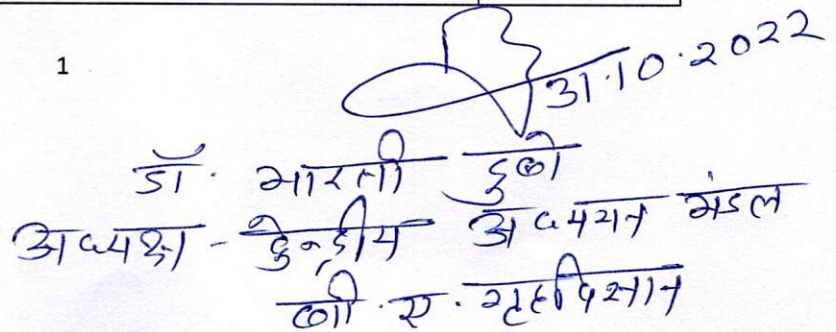 1
31.10.2022
डॉ. भारती दुबे
अध्यक्ष - केन्द्रीय अध्ययन मंडल
बी.ए. गृहविज्ञान